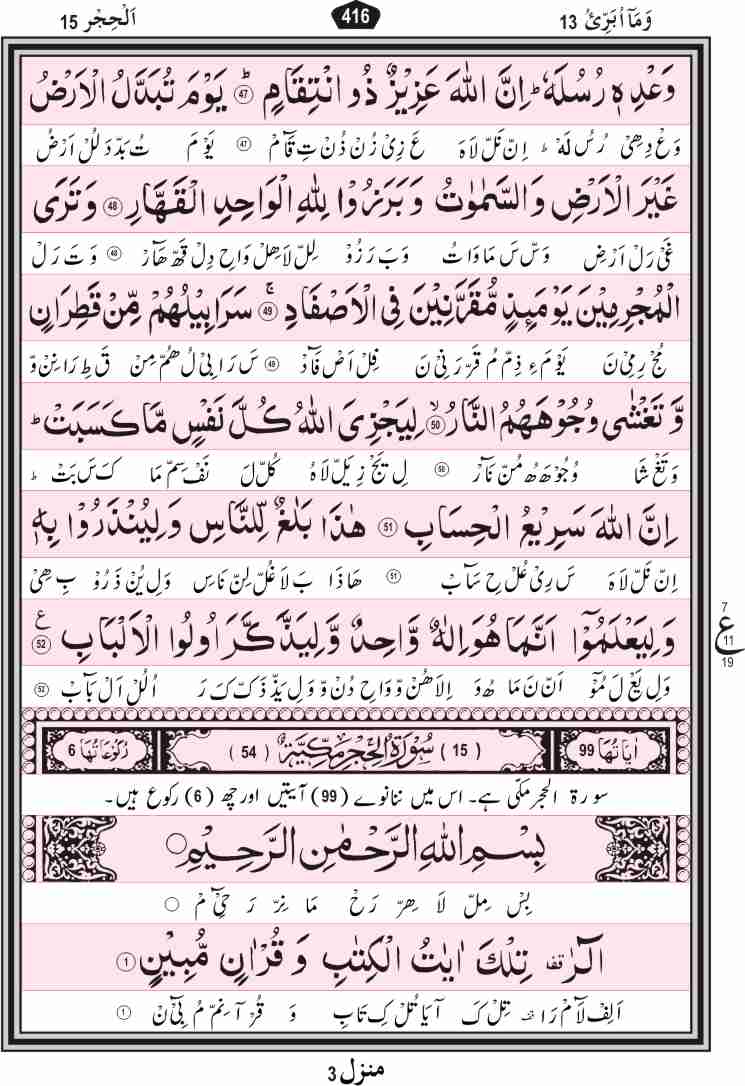 وَمَآ اُبَرِّئُ 13
416
اَلْحِجْر 15
وَعْدِهٖ رُسُلَهٗ ؕ اِنَّ اللّٰهَ عَزِيْزٌ ذُو انْتِقَامٍ ؕ 47 يَوْمَ تُبَدَّلُ الْاَرْضُ
وَعْ دِهِىْ رُسُ لَهٗ ؕ اِنَّ نَلَّ لَاهَ عَ زِىْ زُنْ ذُنْ تِ قَآمْ 47 يَوْ مَ تُ بَدَّ دَ لُلْ اَرْضُ
غَيْرَ الْاَرْضِ وَالسَّمٰوٰتُ وَبَرَزُوْا لِلّٰهِ الْوَاحِدِ الْقَهَّارِ 48 وَتَرَى
غَىْ رَلْ اَرْضِ وَسْ سَ مَا وَاتُ وَبَ رَزُوْ لِلْ لَاهِلْ وَاحِ دِلْ قَهْ هَآرْ 48 وَ تَ رَلْ
الْمُجْرِمِيْنَ يَوْمَئِذٍ مُّقَرَّنِيْنَ فِى الْاَصْفَادِ ۚ 49 سَرَابِيْلُهُمْ مِّنْ قَطِرَانٍ
مُجْ رِمِىْ نَ يَوْ مَ ءِ ذِمْ مُ قَرْ رَ نِىْ نَ فِلْ اَصْ فَآدْ 49 سَ رَا بِىْ لُ هُمْ مِنْ قَ طِ رَا نِنْ وَّ
وَّ تَغْشٰى وُجُوْهَهُمُ النَّارُ ۙ 50 لِيَجْزِىَ اللّٰهُ كُلَّ نَفْسٍ مَّا كَسَبَتْ ؕ
وَ تَغْ شَا وُ جُوْ هَ هُ مُنْ نَآرْ 50 لِ يَجْ زِ يَلْ لَاهُ كُلْ لَ نَفْ سِمْ مَا كَ سَ بَتْ ؕ
اِنَّ اللّٰهَ سَرِيْعُ الْحِسَابِ 51 هٰذَا بَلٰغٌ لِّلنَّاسِ وَلِيُنْذَرُوْا بِهٖ
اِنْ نَلْ لَاهَ سَ رِىْ عُلْ حِ سَآبْ 51 هَاذَا بَ لَا غُلْ لِنْ نَاسِ وَلِ يُنْ ذَ رُوْ بِ هِىْ
وَلِيَعْلَمُوْۤا اَنَّمَا هُوَ اِلٰهٌ وَّاحِدٌ وَّلِيَذَّكَّرَ اُولُوا الْاَلْبَابِ ع 52
وَلِ يَعْ لَ مُوْٓ اَنْ نَ مَا هُ وَ اِلَاهُنْ وَّ وَاحِ دُنْ وَّ وَلِ يَذْ ذَكْ كَ رَ اُلُلْ اَلْ بَآبْ 52
7
ع
11
19
اٰيَاتُهَا 99
(15) سُوْرَةُ الْحِجْرِ مَكِّيَّةٌ (54)
رُكُوْعَاتُهَا 6
سورۃ الحجر مکّی ہے۔ اس میں ننانوے (99) آیتیں اور چھ (6) رکوع ہیں۔
بِسْمِ اللّٰهِ الرَّحْمٰنِ الرَّحِيْمِ
بِسْ مِلْ لَا هِرْ رَحْ مَا نِرْ رَ حِىْٓ مْ
الٓرٰ ۫ قف تِلْكَ اٰيٰتُ الْكِتٰبِ وَ قُرْاٰنٍ مُّبِيْنٍ 1
اَلِفْ لَآمْ رَا قف تِلْ كَ آيَا تُلْ كِ تَابِ وَ قُرْ آ نِمْ مُ بِىْٓ نْ 1
منزل 3